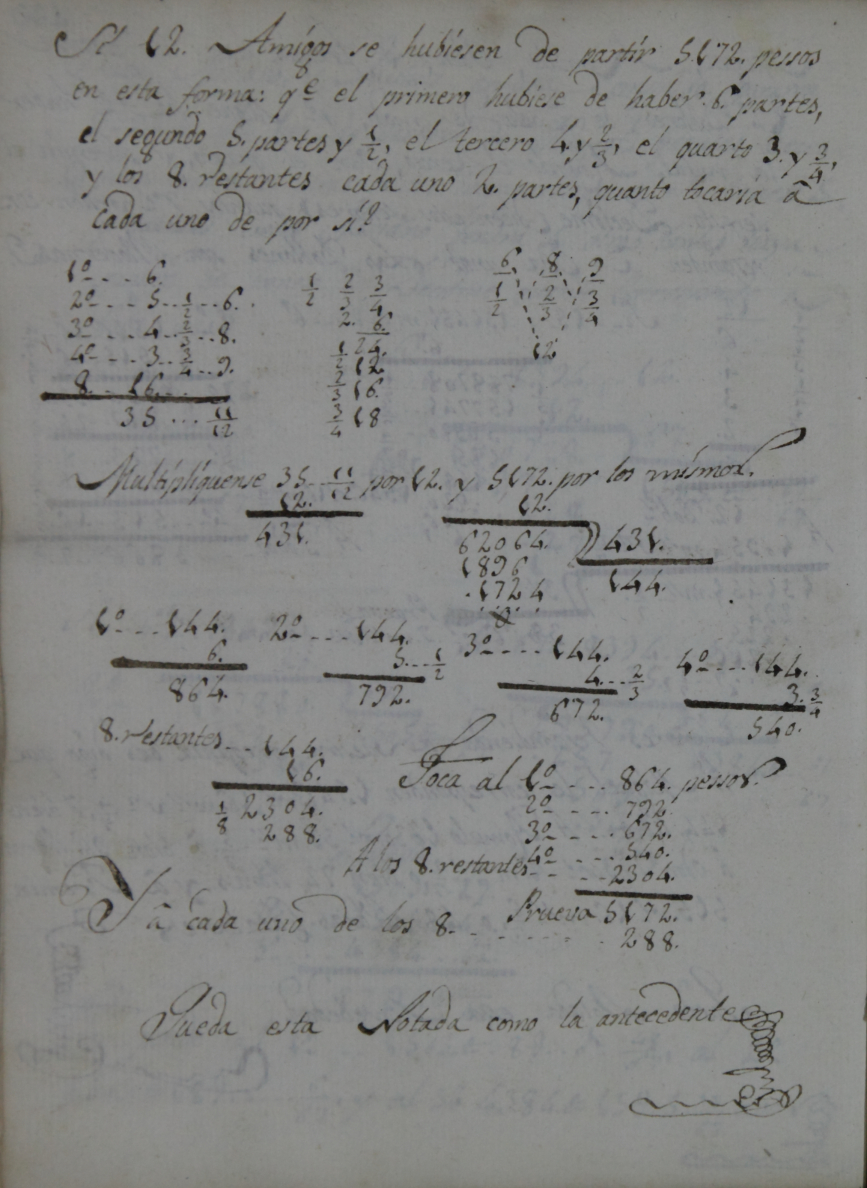 Si 12. Amigos se hubiesen de partir 5172. pessos
en esta forma: qe el primero hubiese de haber 6 partes,
el segundo 5. partes y 1/2, el tercero 4. y 2/3, el quarto 3. y 3/4,
y los 8. restantes cada uno 2. partes, quanto tocaria â
cada uno de por si?
1º - - - 6.
2º - - - 5 - - 1/2 - - 6.
3º - - - 4 - - 2/3 - - 8.
4º - - - 3 - - 3/4 - - 9.
8 - - 16.
35 - - - 11/12
1/2 2/3 3/4
2. 6.
1/2 24.
1/2 12
2/3 16
3/4 18
6 8 9
1/2 2/3 3/4
12
Multipliquense 35 - - 11/12 por 12. y 5172. por los mismos.
12. 12.
431. 62064. 431.
1896 144.
1724
0
1º - - - 144. 2º - - - 144. 3º - - - 144. 4º - - - 144.
6. 5 - - 1/2 4 - - 2/3 3. 3/4
864. 792. 672. 540.
8. restantes - - 144.
16.
1/8 2304.
288.
Toca al 1º - - - 864. pessos.
2º - - - 792.
3º - - - 672.
4º - - - 540.
A los 8. restantes - - - 2304.
Prueva 5172.
Y â cada uno de los 8. - - - - - - 288.
Queda esta Notada como la antecedente